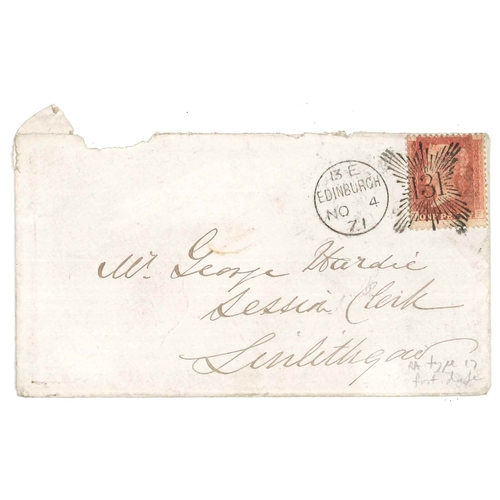 13·E
EDINBURGH
NO 4
71
131
Mr. George Hardie
Session Clerk
Linlithgow
type 17